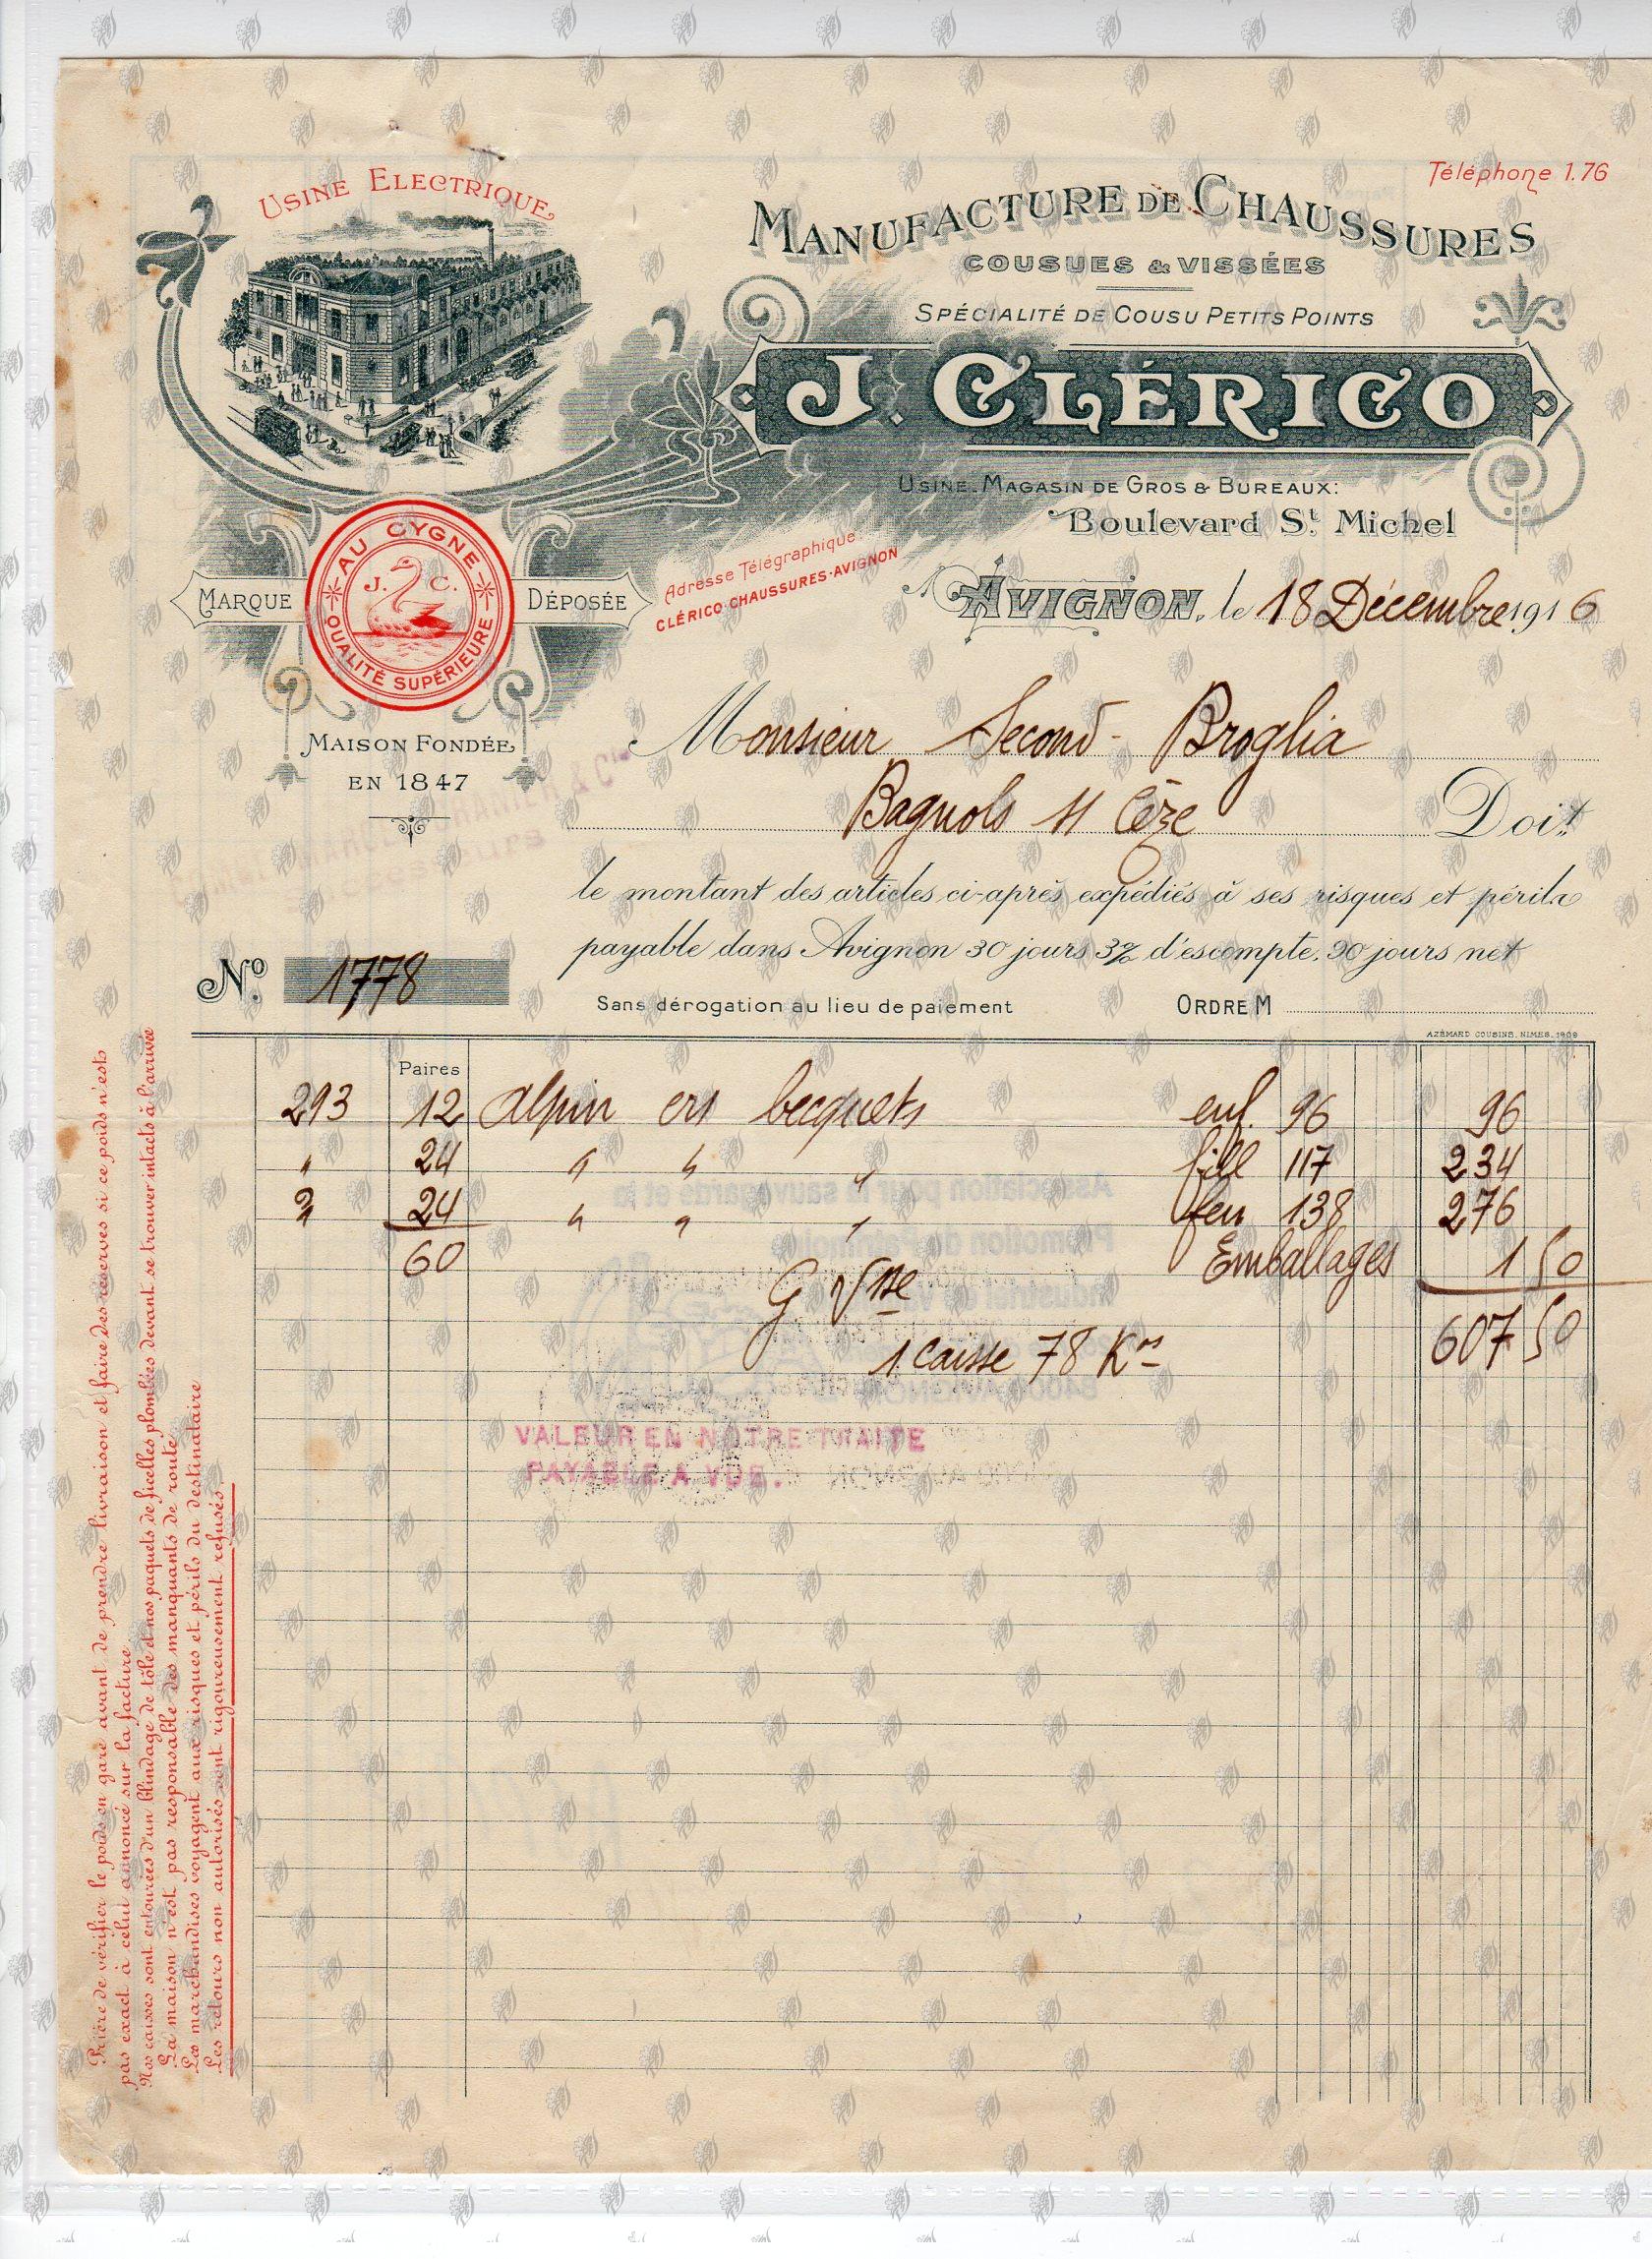 Téléphone 1.76
USINE ELECTRIQUE
MANUFACTURE DE CHAUSSURES
COUSUES & VISSÉES
SPÉCIALITÉ DE COUSU PETITS POINTS
J. CLÉRICO
USINE. MAGASIN DE GROS & BUREAUX:
Boulevard St. Michel
AU CYGNE
J. C.
QUALITÉ SUPÉRIEURE
MARQUE DÉPOSÉE
Adresse Télégraphique:
CLÉRICO-CHAUSSURES-AVIGNON
AVIGNON, le 18 Décembre 1916
MAISON FONDÉE
EN 1847
Monsieur Second-Broglia
Bagnols s/ Cèze Doit
le montant des articles ci-après expédiés à ses risques et périls
payable dans Avignon 30 jours 3% d'escompte. 90 jours net
No. 1778
Sans dérogation au lieu de paiement ORDRE M
AZÉMARD COUSINS. NIMES. 1909
Paires
293 12 Alpin crs becquets enf. 96 96
" 24 " " " fill 117 234
" 24 " " " fem 138 276
60 Emballages 1 50
607 50
1 caisse 78 Kos
VALEUR EN NOTRE TRAITE
PAYABLE A VUE.
Prière de vérifier le poids en gare avant de prendre livraison et faire des réserves si ce poids n'est
pas exact à celui annoncé sur la facture
Nos caisses sont entourées d'un blindage de tôle et nos paquets de ficelles plombées devant se trouver intacts à l'arrivée
La maison n'est pas responsable des manquants de route
Les marchandises voyagent aux risques et périls du destinataire
Les retours non autorisés sont rigoureusement refusés